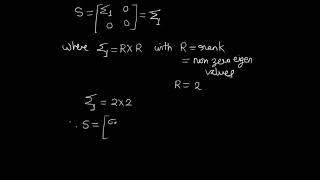 S = [Σ₁ 0 0 0] = Σ₁
where Σ₁ = R×R with R = rank
= non zero eigen
values
R = 2
Σ₁ = 2×2
∴ S = [σ